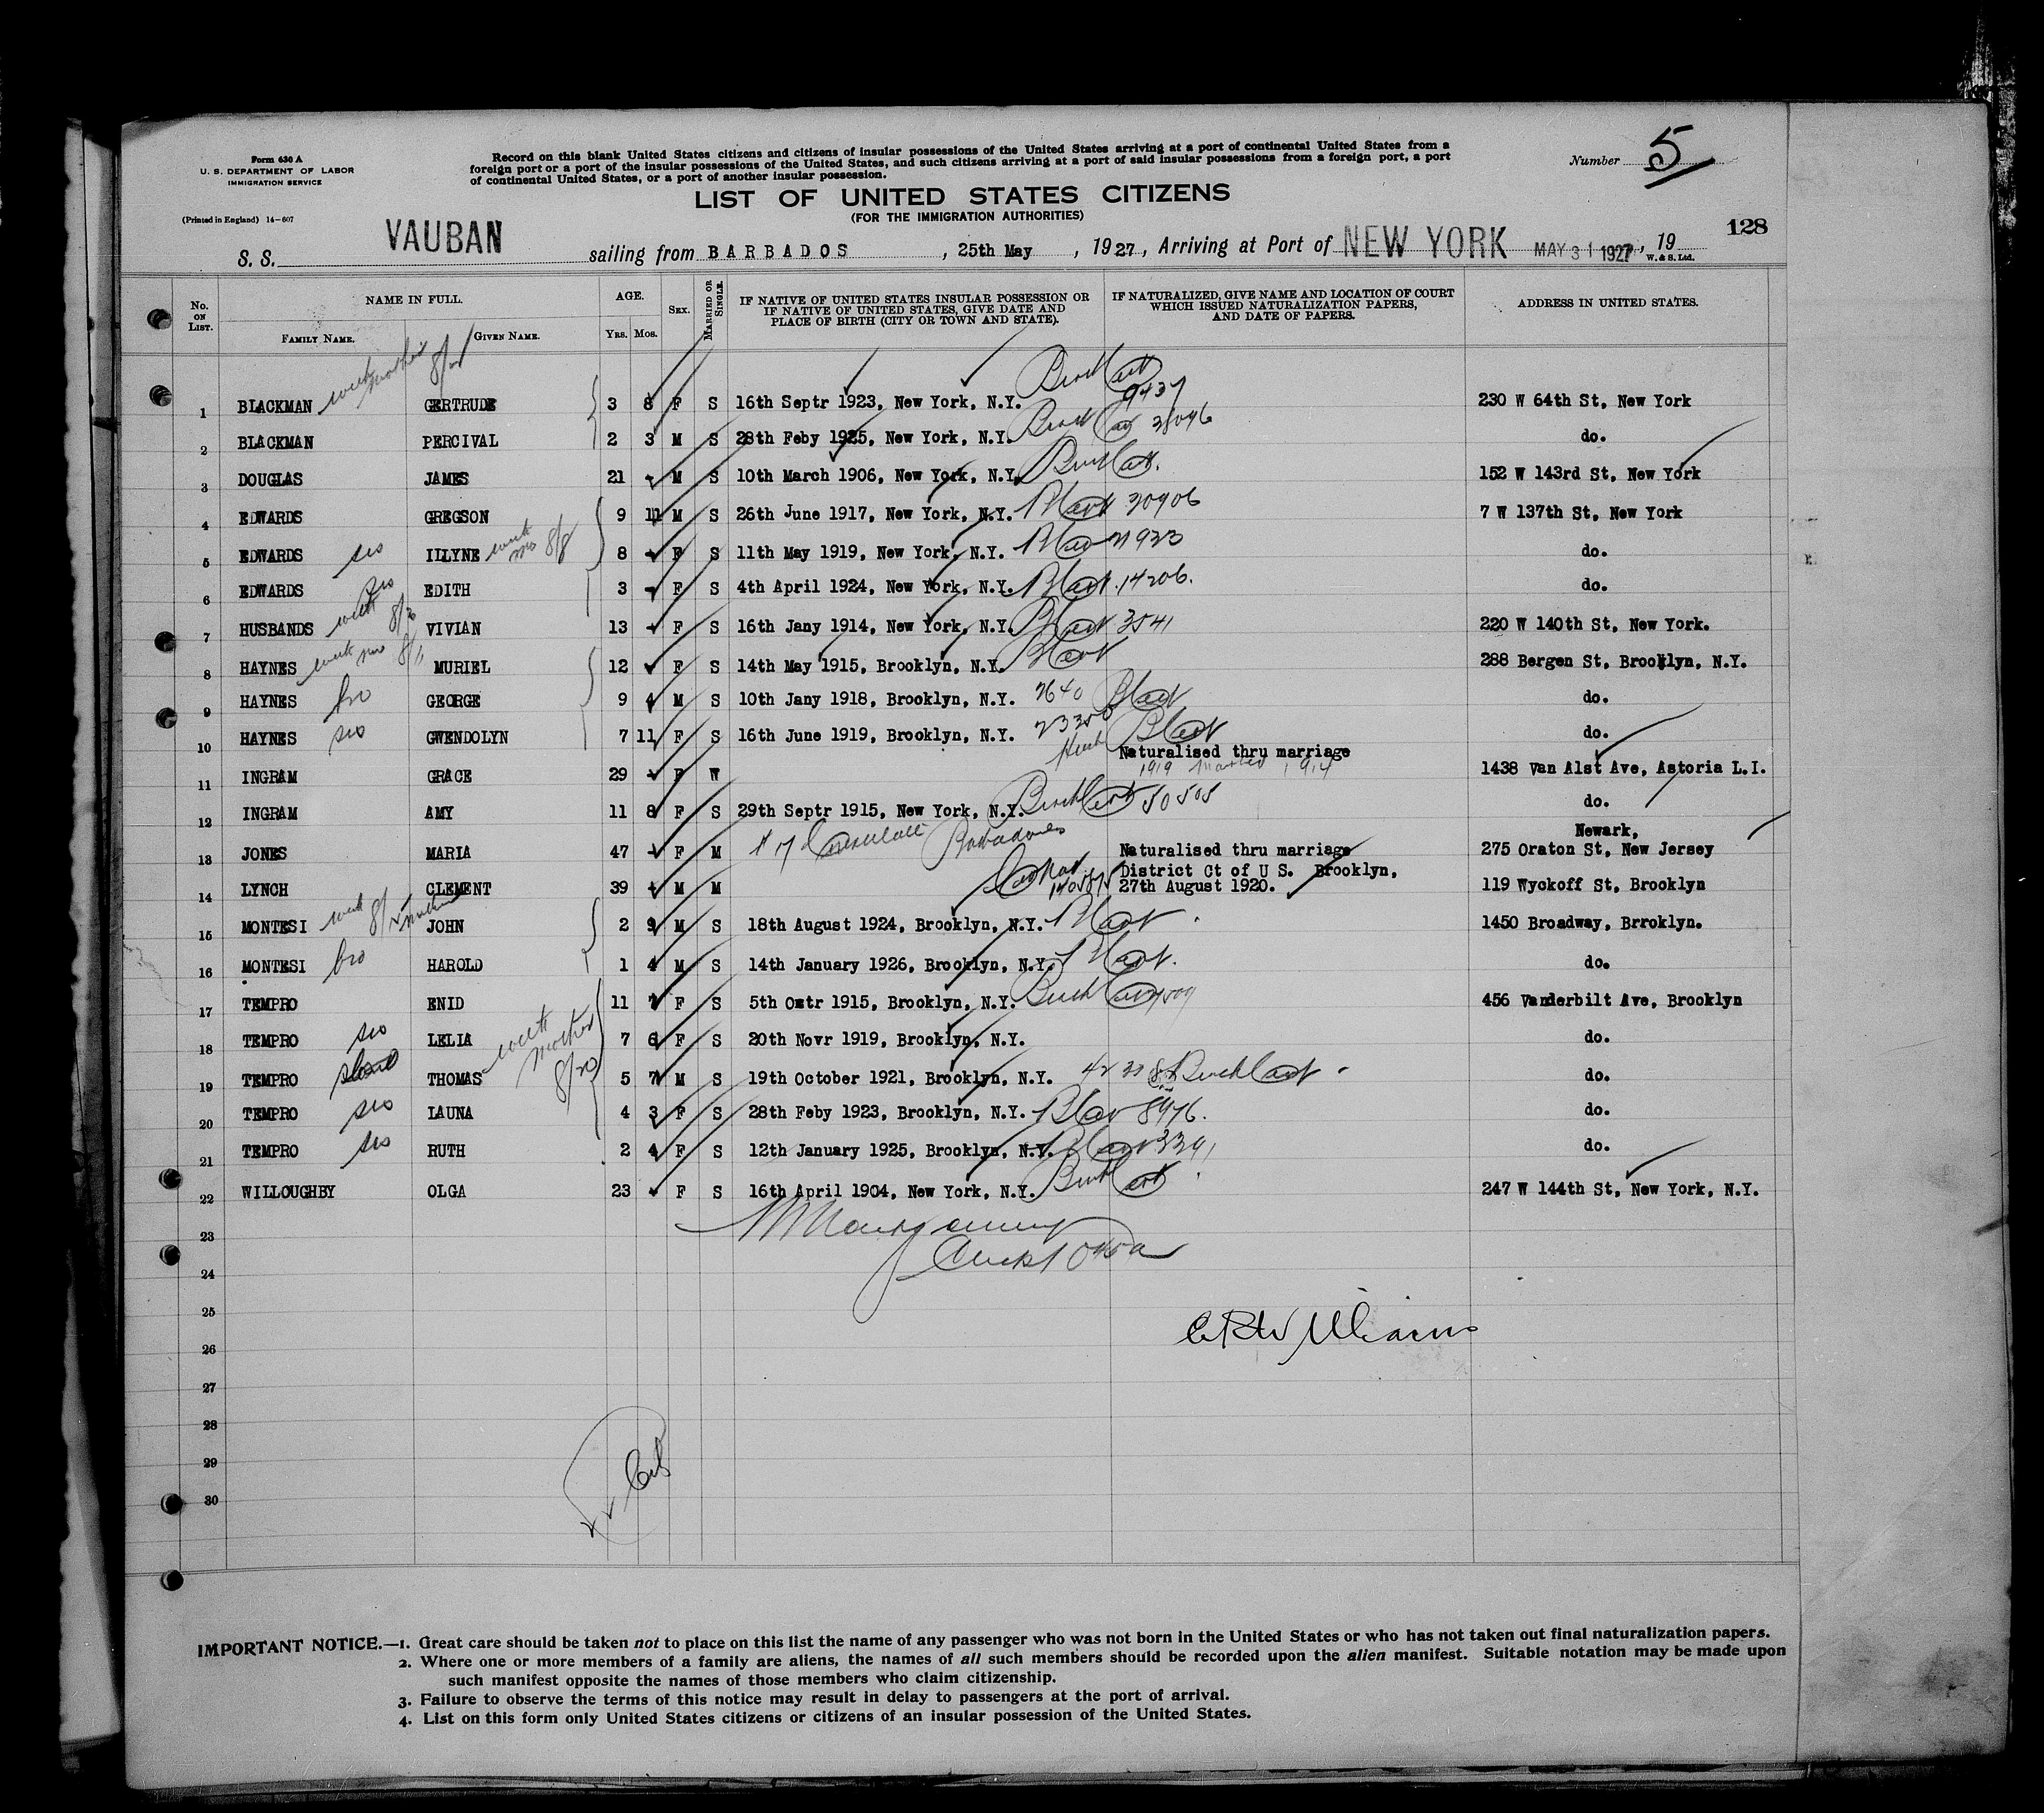 Form 630 A
U. S. DEPARTMENT OF LABOR
IMMIGRATION SERVICE
(Printed in England) 14-607
Record on this blank United States citizens and citizens of insular possessions of the United States arriving at a port of continental United States from a
foreign port or a port of the insular possessions of the United States, and such citizens arriving at a port of said insular possessions from a foreign port, a port
of continental United States, or a port of another insular possession.
Number 5
LIST OF UNITED STATES CITIZENS
(FOR THE IMMIGRATION AUTHORITIES)
128
S. S. VAUBAN sailing from BARBADOS, 25th May, 1927, Arriving at Port of NEW YORK MAY 31 1927, 19
W. & S. Ltd.
No. ON LIST. NAME IN FULL. FAMILY NAME. GIVEN NAME. AGE. YRS. MOS. SEX. MARRIED OR SINGLE. IF NATIVE OF UNITED STATES INSULAR POSSESSION OR IF NATIVE OF UNITED STATES, GIVE DATE AND PLACE OF BIRTH (CITY OR TOWN AND STATE). IF NATURALIZED, GIVE NAME AND LOCATION OF COURT WHICH ISSUED NATURALIZATION PAPERS, AND DATE OF PAPERS. ADDRESS IN UNITED STATES.
with mother 8/
1 BLACKMAN GERTRUDE 3 8 F S 16th Septr 1923, New York, N.Y. Birth Cert 9437 230 W 64th St, New York
2 BLACKMAN PERCIVAL 2 3 M S 28th Feby 1925, New York, N.Y. do.
3 DOUGLAS JAMES 21 - M S 10th March 1906, New York, N.Y. Birth Cert. 152 W 143rd St, New York
4 EDWARDS GREGSON 9 11 M S 26th June 1917, New York, N.Y. B Cert 30906 7 W 137th St, New York
5 EDWARDS sis ILLYNE with mo 8/8 8 - F S 11th May 1919, New York, N.Y. B Cer 21923 do.
6 EDWARDS sis EDITH 3 - F S 4th April 1924, New York, N.Y. B Cert. 14206. do.
7 HUSBANDS with VIVIAN 13 - F S 16th Jany 1914, New York, N.Y. B Cert 3541 220 W 140th St, New York.
8 HAYNES with mo 8/11 MURIEL 12 - F S 14th May 1915, Brooklyn, N.Y. B Cert 288 Bergen St, Brooklyn, N.Y.
9 HAYNES bro GEORGE 9 4 M S 10th Jany 1918, Brooklyn, N.Y. 2640 B Cert do.
10 HAYNES sis GWENDOLYN 7 11 F S 16th June 1919, Brooklyn, N.Y. 23350 B Cert do.
11 INGRAM GRACE 29 - F W Naturalised thru marriage 1919 married 1914 1438 Van Alst Ave, Astoria L.I.
12 INGRAM AMY 11 8 F S 29th Septr 1915, New York, N.Y. Birth Cert 50505 do.
13 JONES MARIA 47 - F M Consulate Barbadoes Naturalised thru marriage Newark, 275 Oraton St, New Jersey
14 LYNCH CLEMENT 39 - M M Cer Nat District Ct of U S. Brooklyn, 27th August 1920. 119 Wyckoff St, Brooklyn
15 MONTESI with mother JOHN 2 9 M S 18th August 1924, Brooklyn, N.Y. B Cert. 1450 Broadway, Brrroklyn.
16 MONTESI bro HAROLD 1 4 M S 14th January 1926, Brooklyn, N.Y. B Cert. do.
17 TEMPRO ENID 11 7 F S 5th Octr 1915, Brooklyn, N.Y. Birth Cert 456 Vanderbilt Ave, Brooklyn
18 TEMPRO sis LELIA with mother 8/20 7 6 F S 20th Novr 1919, Brooklyn, N.Y. do.
19 TEMPRO THOMAS 5 7 M S 19th October 1921, Brooklyn, N.Y. Birth Cert do.
20 TEMPRO sis LAUNA 4 3 F S 28th Feby 1923, Brooklyn, N.Y. B Cer 8976. do.
21 TEMPRO sis RUTH 2 4 F S 12th January 1925, Brooklyn, N.Y. B Cert 3391 do.
22 WILLOUGHBY OLGA 23 - F S 16th April 1904, New York, N.Y. Birth Cert 247 W 144th St, New York, N.Y.
23
24
25
26
27
28
29
30
IMPORTANT NOTICE.—1. Great care should be taken not to place on this list the name of any passenger who was not born in the United States or who has not taken out final naturalization papers.
2. Where one or more members of a family are aliens, the names of all such members should be recorded upon the alien manifest. Suitable notation may be made upon
such manifest opposite the names of those members who claim citizenship.
3. Failure to observe the terms of this notice may result in delay to passengers at the port of arrival.
4. List on this form only United States citizens or citizens of an insular possession of the United States.